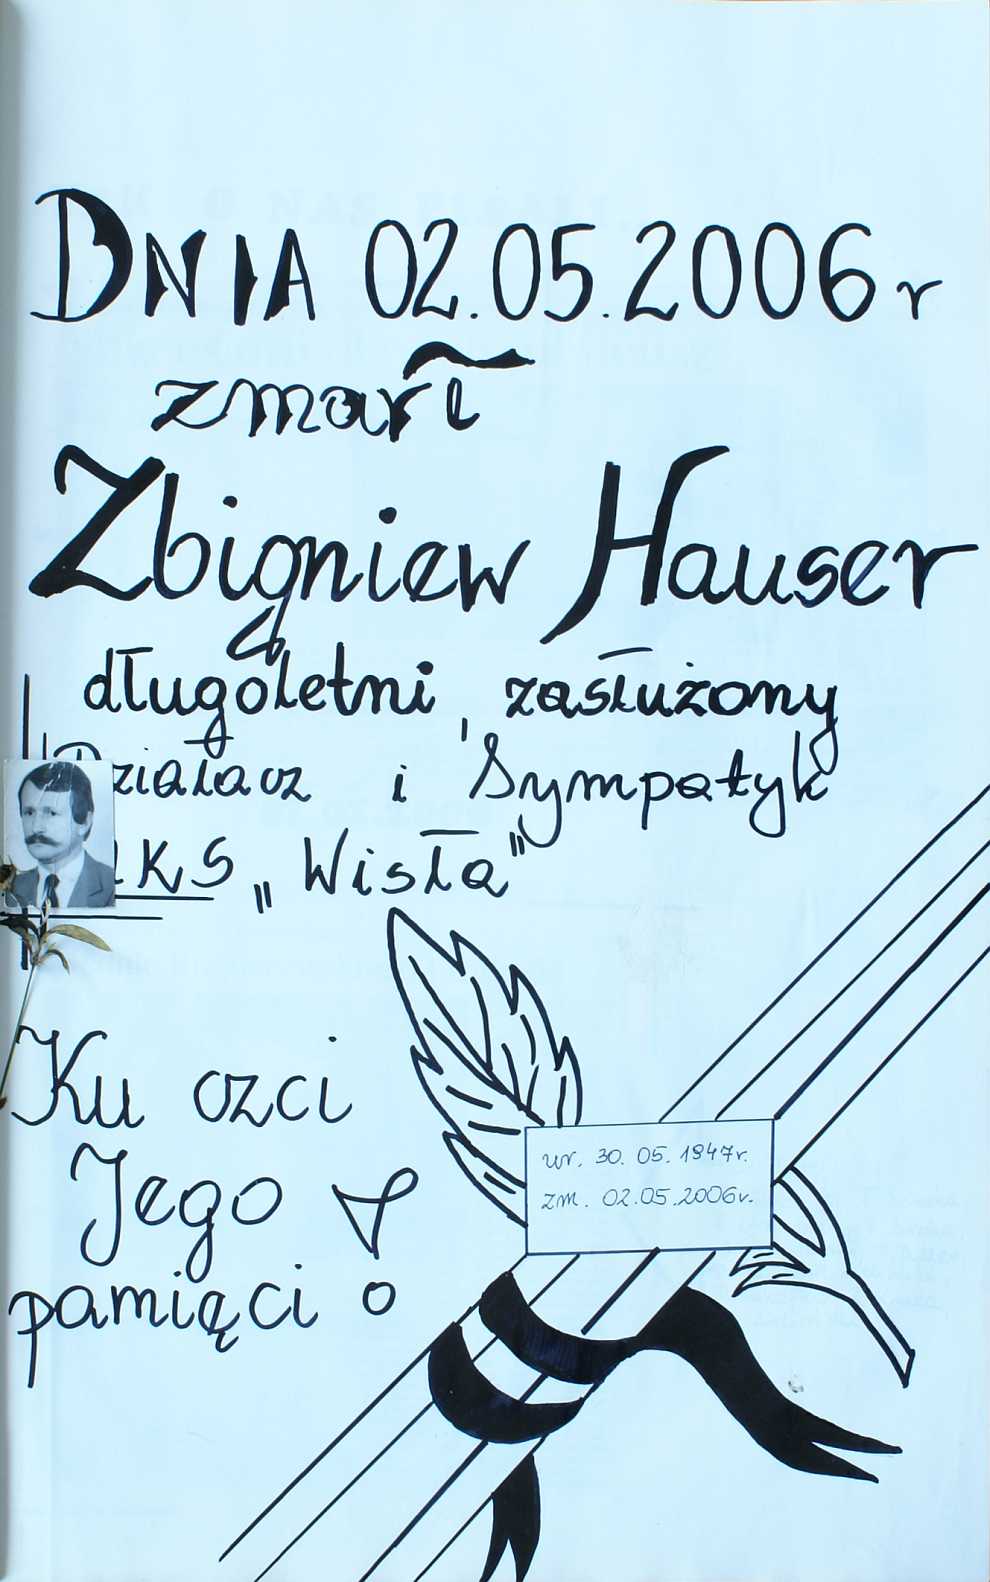 DNIA 02.05.2006 r
zmarł
Zbigniew Hauser
długoletni, zasłużony
Działacz i Sympatyk
KS „Wisła"
Ku czci
Jego
pamięci !
ur. 30.05.1947r.
zm. 02.05.2006r.